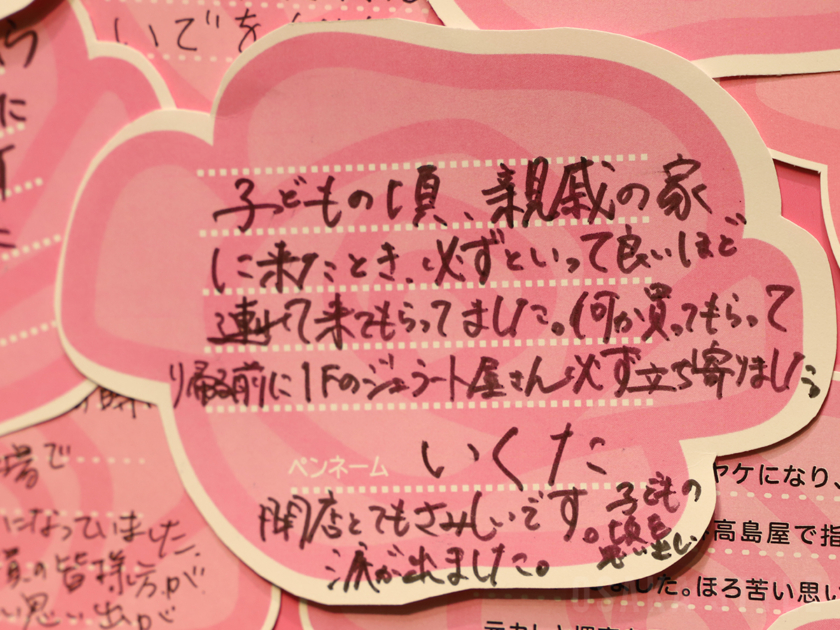 いでを
子どもの頃、親戚の家
に来たとき、必ずといって良いほど
連れて来てもらってました。何か買ってもらって
帰る前に1Fのジェラート屋さん必ず立ち寄りました。
ペンネーム いくた
閉店とてもさみしいです。子どもの
頃を
思い出し
涙が出ました。
場で
になっていました。
員の皆様方が
い思い出が
ヤケになり、
高島屋で指
ました。ほろ苦い思い